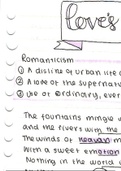 love's
Romanticism
① A dislike of urban life a
② A love of the supernatu
③ Use of ordinary, ever
The fountains mingle w
and the rivers with the
The winds of heaven m
With a sweet emotion
Nothing in the world i